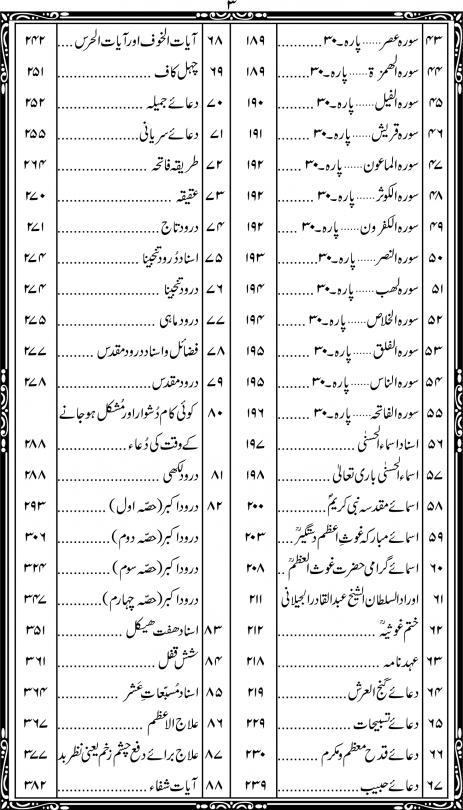 ۳
۴۳ سورہ عصر...... پارہ۔۳۰............ ۱۸۹
۴۴ سورہ الھمزۃ...... پارہ۔۳۰............ ۱۸۹
۴۵ سورہ الفیل...... پارہ۔۳۰............ ۱۹۰
۴۶ سورہ قریش...... پارہ۔۳۰............ ۱۹۱
۴۷ سورہ الماعون...... پارہ۔۳۰............ ۱۹۲
۴۸ سورہ الکوثر...... پارہ۔۳۰............ ۱۹۲
۴۹ سورہ الکفرون...... پارہ۔۳۰............ ۱۹۲
۵۰ سورہ النصر...... پارہ۔۳۰............ ۱۹۳
۵۱ سورہ لھب...... پارہ۔۳۰............ ۱۹۴
۵۲ سورہ الخلاص...... پارہ۔۳۰............ ۱۹۴
۵۳ سورہ الفلق...... پارہ۔۳۰............ ۱۹۵
۵۴ سورہ الناس...... پارہ۔۳۰............ ۱۹۵
۵۵ سورہ الفاتحہ...... پارہ۔۳۰............ ۱۹۶
۵۶ اسناد اسماء الحسنٰی ............ ۱۹۷
۵۷ اسماء الحسنٰی باری تعالیٰ ............ ۱۹۸
۵۸ اسمائے مقدسہ نبی کریمؐ ............ ۲۰۰
۵۹ اسمائے مبارکہ غوثِ اعظم دستگیرؒ .... ۲۰۳
۶۰ اسمائے گرامی حضرت غوث العظمؒ .. ۲۰۸
۶۱ اوراد السلطان الشیخ عبدالقادر الجیلانی ۲۱۱
۶۲ ختم غوثیہؒ ............ ۲۱۲
۶۳ عہدنامہ ............ ۲۱۸
۶۴ دعائے گنج العرش ............ ۲۱۹
۶۵ دعائے تسبیحات ............ ۲۲۹
۶۶ دعائے قدح معظم و مکرم ............ ۲۳۰
۶۷ دعائے حبیب ............ ۲۳۹
۶۸ آیات الخوف اور آیات الحرس .... ۲۴۲
۶۹ چہل کاف ............ ۲۵۱
۷۰ دعائے جمیلہ ............ ۲۵۲
۷۱ دعائے سریانی ............ ۲۵۵
۷۲ طریقہ فاتحہ ............ ۲۶۴
۷۳ عقیقہ ............ ۲۷۰
۷۴ درود تاج ............ ۲۷۱
۷۵ اسناد دُرود تنجینا ............ ۲۷۴
۷۶ درود تنجینا ............ ۲۷۴
۷۷ درود ماہی ............ ۲۷۵
۷۸ فضائل و اسناد درود مقدس ............ ۲۷۷
۷۹ درود مقدس ............ ۲۷۸
۸۰ کوئی کام دُشوار اور مُشکل ہو جانے
کے وقت کی دُعاء ............ ۲۸۸
۸۱ درود لکھی ............ ۲۸۸
۸۲ درود اکبر (حصّہ اول) ............ ۲۹۳
درود اکبر (حصّہ دوم) ............ ۳۰۶
درود اکبر (حصّہ سوم) ............ ۳۲۴
درود اکبر (حصّہ چہارم) ............ ۳۴۷
۸۳ اسناد ھفت ھیکل ............ ۳۵۱
۸۴ شش قفل ............ ۳۶۱
۸۵ اسناد مُسبّعاتِ عشر ............ ۳۶۴
۸۶ علاج الاعظم ............ ۳۶۷
۸۷ علاج برائے دفع چشم زخم یعنی نظر بد ۳۷۷
۸۸ آیات شفاء ............ ۳۸۲